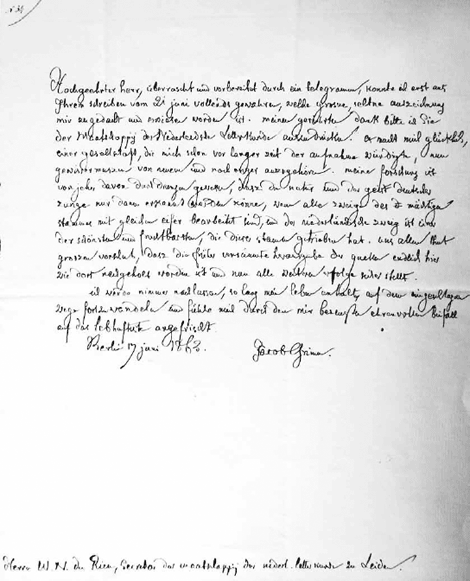 Hochgeehrter herr, überrascht und vorbereitet durch ein telegramm, konnte ich erst aus
Ihrem schreiben vom 21 juni vollends gewahren, welche grosse, seltne auszeichnung
mir zugedacht und worden ist. meinen gerührten dank bitte ich Sie
der Maatschappij der Nederlandsche Letterkunde auszudrücken. es macht mich glücklich,
einer gesellschaft, die mich schon vor langer zeit der aufnahme würdigte, nun
gewissermassen von neuem und noch enger anzugehören. meine forschung ist
von jeher davon gewesen, dass die natur und der geist deutscher
zunge nur dann erkannt werden könne, wenn alle zweige des mächtigen
stammes mit gleichem eifer bearbeitet sind, und der niederländische zweig ist einer
der schönsten und fruchtbarsten, die dieser stamm getrieben hat. uns allen thut
grossen vorschub, dass die früher versäumte herausgabe der quellen endlich hier
wie dort nachgeholt worden ist und nun alle weitern erfolge sicher stellt.
ich werde nimmer nachlassen, so lang mein leben anhält, auf dem eingeschlagnen
wege fortzuwandeln und fühle mich durch den mir ehrenvollen beifall
auf das lebhafteste angefrischt.
Berlin 17 juni 1863. Jacob Grimm.
Herrn W. N. du Rieu, secretar der maatschappij der nederl. letterkunde zu Leiden.